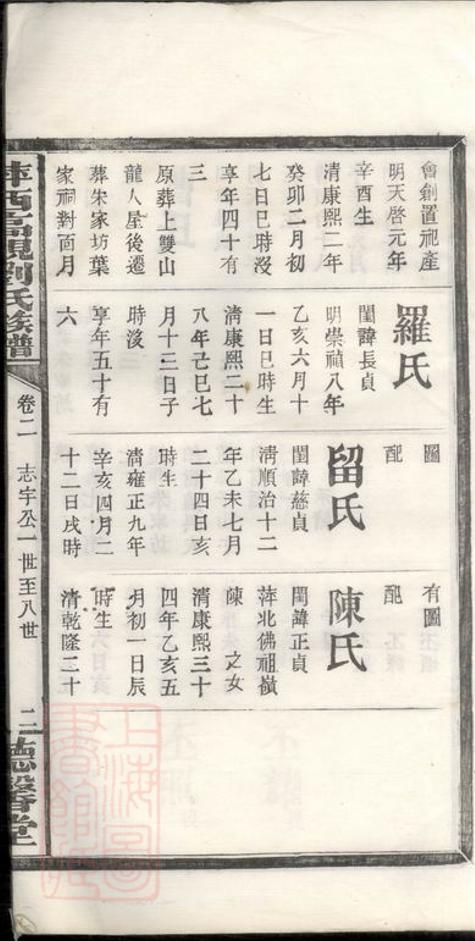 會創置祀產
明天啓元年
辛酉生
清康熙二年
癸卯二月初
七日巳時沒
享年四十有
三
原葬上雙山
龍人屋後遷
葬朱家坊葉
家祠對面月
羅氏
閨諱長貞
明崇禎八年
乙亥六月十
一日巳時生
清康熙二十
八年己巳七
月十三日子
時沒
享年五十有
六
圖
配
留氏
閨諱慈貞
清順治十二
年乙未七月
二十四日亥
時生
清雍正九年
辛亥四月二
十二日戌時
有圖
配
陳氏
閨諱正貞
萍北佛祖嶺
陳 之女
清康熙三十
四年乙亥五
月初一日辰
時生
清乾隆三十
萍西高視劉氏族譜
卷二 志宇公一世至八世
二
德馨堂
上海圖
書館藏